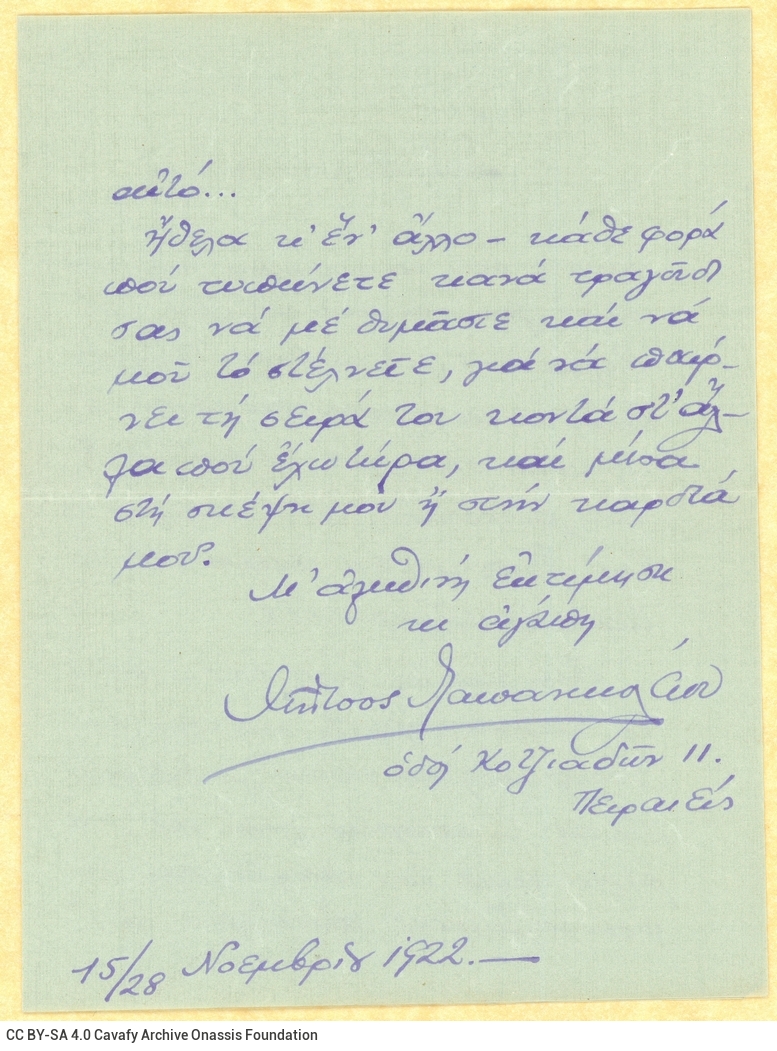 αὐτό...
ἤθελα κι' ἕν' ἄλλο – κάθε φορά
ποὺ τυπώνετε κανά τραγοῦδι
σας νά μέ θυμᾶστε καί νά
μοῦ τό στέλνετε, γιά νά παίρ-
νει τή σειρά του κοντά στ' ἄλ-
λα πού ἔχω τώρα, καί μέσα
στή σκέψη μου ἤ στήν καρδιά
μου.
Μ' ἀληθινή ἐκτίμηση
κι ἀγάπη
Παπανικολάου
ὁδός Κοτζιαδῶν 11.
Πειραιεύς
15/28 Νοεμβρίου 1922.—
CC BY-SA 4.0 Cavafy Archive Onassis Foundation